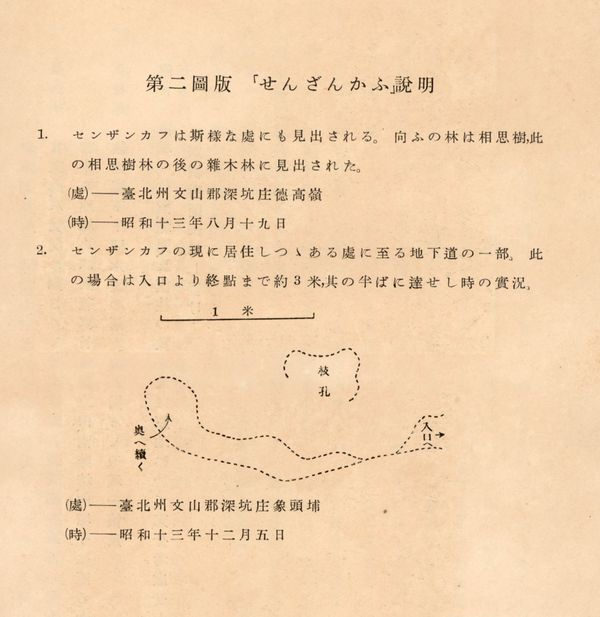 第二圖版 「せんざんかふ」説明
1. センザンカフは斯樣な處にも見出される。 向ふの林は相思樹,此
の相思樹林の後の雜木林に見出された。
(處)――臺北州文山郡深坑庄德高嶺
(時)――昭和十三年八月十九日
2. センザンカフの現に居住しつゝある處に至る地下道の一部。 此
の場合は入口より終點まで約3米,其の半ばに達せし時の實況。
1 米
枝孔
入口へ
奧へ續く
(處)――臺北州文山郡深坑庄象頭埔
(時)――昭和十三年十二月五日